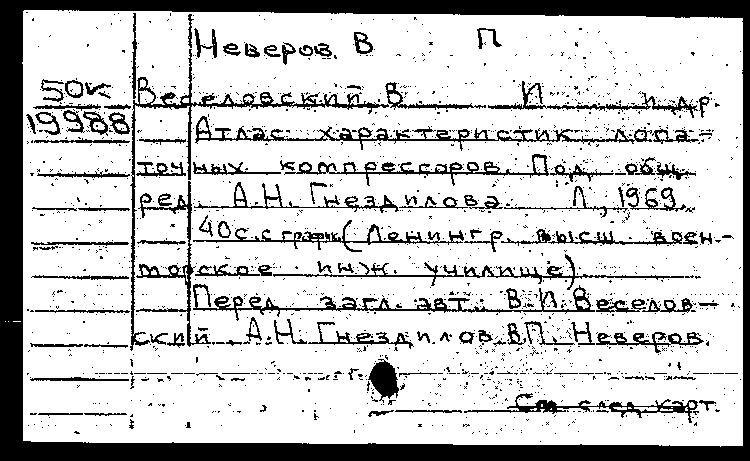 Неверов. В П
50к Веселовский, В И и др.
19988 Атлас характеристик лопа=
точных компрессоров. Под общ.
ред. А.Н. Гнездилова. Л, 1969.
40с. с график (Ленингр. высш. воен.-
морское инж. училище)
Перед загл. авт.: В.И. Веселов-
ский, А.Н. Гнездилов, В.П. Неверов.
См след карт.